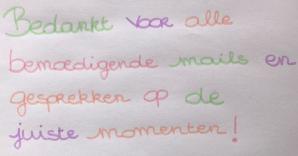 Bedankt voor alle
bemoedigende mails en
gesprekken op de
juiste momenten!